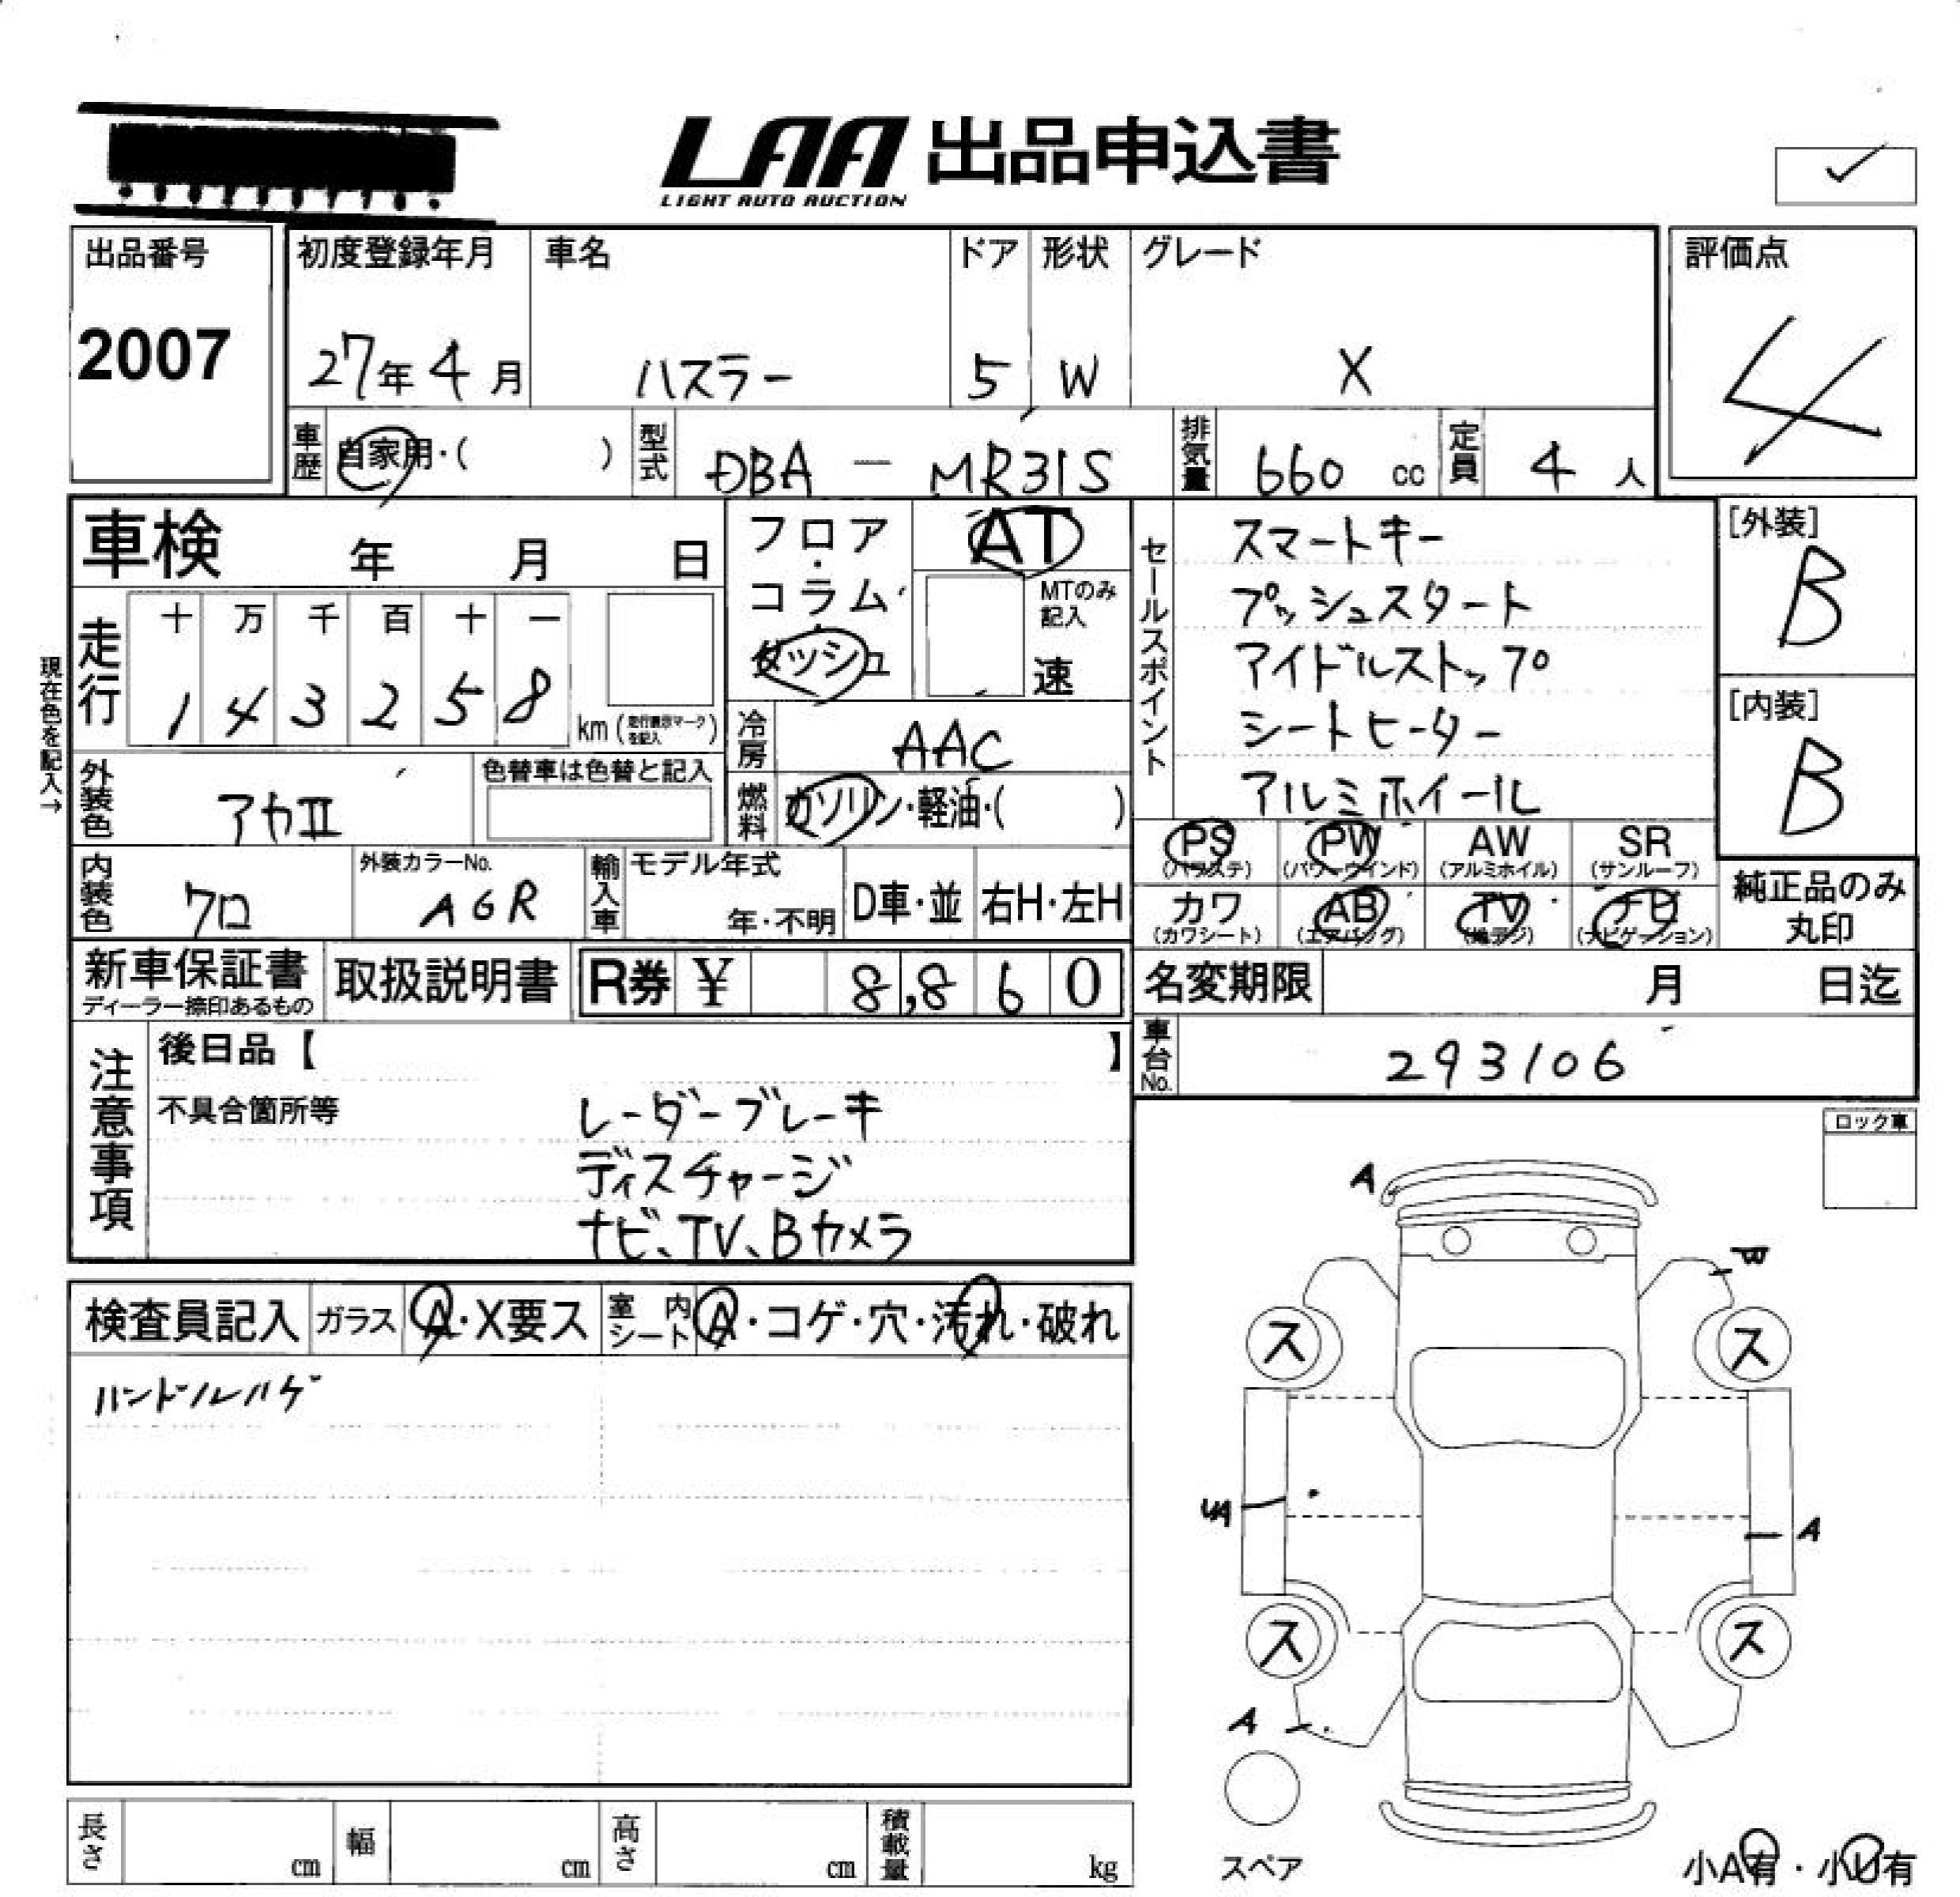 LAA 出品申込書
LIGHT AUTO AUCTION
出品番号
2007
初度登録年月
27年4月
車名
ハスラー
ドア
5
形状
W
グレード
X
評価点
4
車歴 自家用・( )
型式 DBA － MR31S
排気量 660 cc
定員 4 人
車検 年 月 日
フロア・コラム・ダッシュ
AT
MTのみ記入
速
セールスポイント
スマートキー
プッシュスタート
アイドルストップ
シートヒーター
アルミホイール
[外装]
B
[内装]
B
現在色を記入→
走行
十 万 千 百 十 一
1 4 3 2 5 8
km (走行表示マークを記入)
冷房 AAC
燃料 ガソリン・軽油・( )
外装色 アカII
色替車は色替と記入
PS (パワステ)
PW (パワーウインド)
AW (アルミホイル)
SR (サンルーフ)
カワ (カワシート)
AB (エアバッグ)
TV (地デジ)
ナビ (ナビゲーション)
純正品のみ丸印
内装色 クロ
外装カラーNo.
A6R
輸入車
モデル年式
年・不明
D車・並
右H・左H
新車保証書
ディーラー捺印あるもの
取扱説明書
R券 ¥ 8,860
名変期限 月 日迄
車台No. 293106
注意事項
後日品【 】
不具合箇所等
レーダーブレーキ
ディスチャージ
ナビ、TV、Bカメラ
ロック車
検査員記入
ガラス A・X要ス
室内シート A・コゲ・穴・汚れ・破れ
ハンドルハゲ
A
ス
ス
A
ス
ス
A
スペア
小A有・小U有
長さ cm
幅 cm
高さ cm
積載量 kg